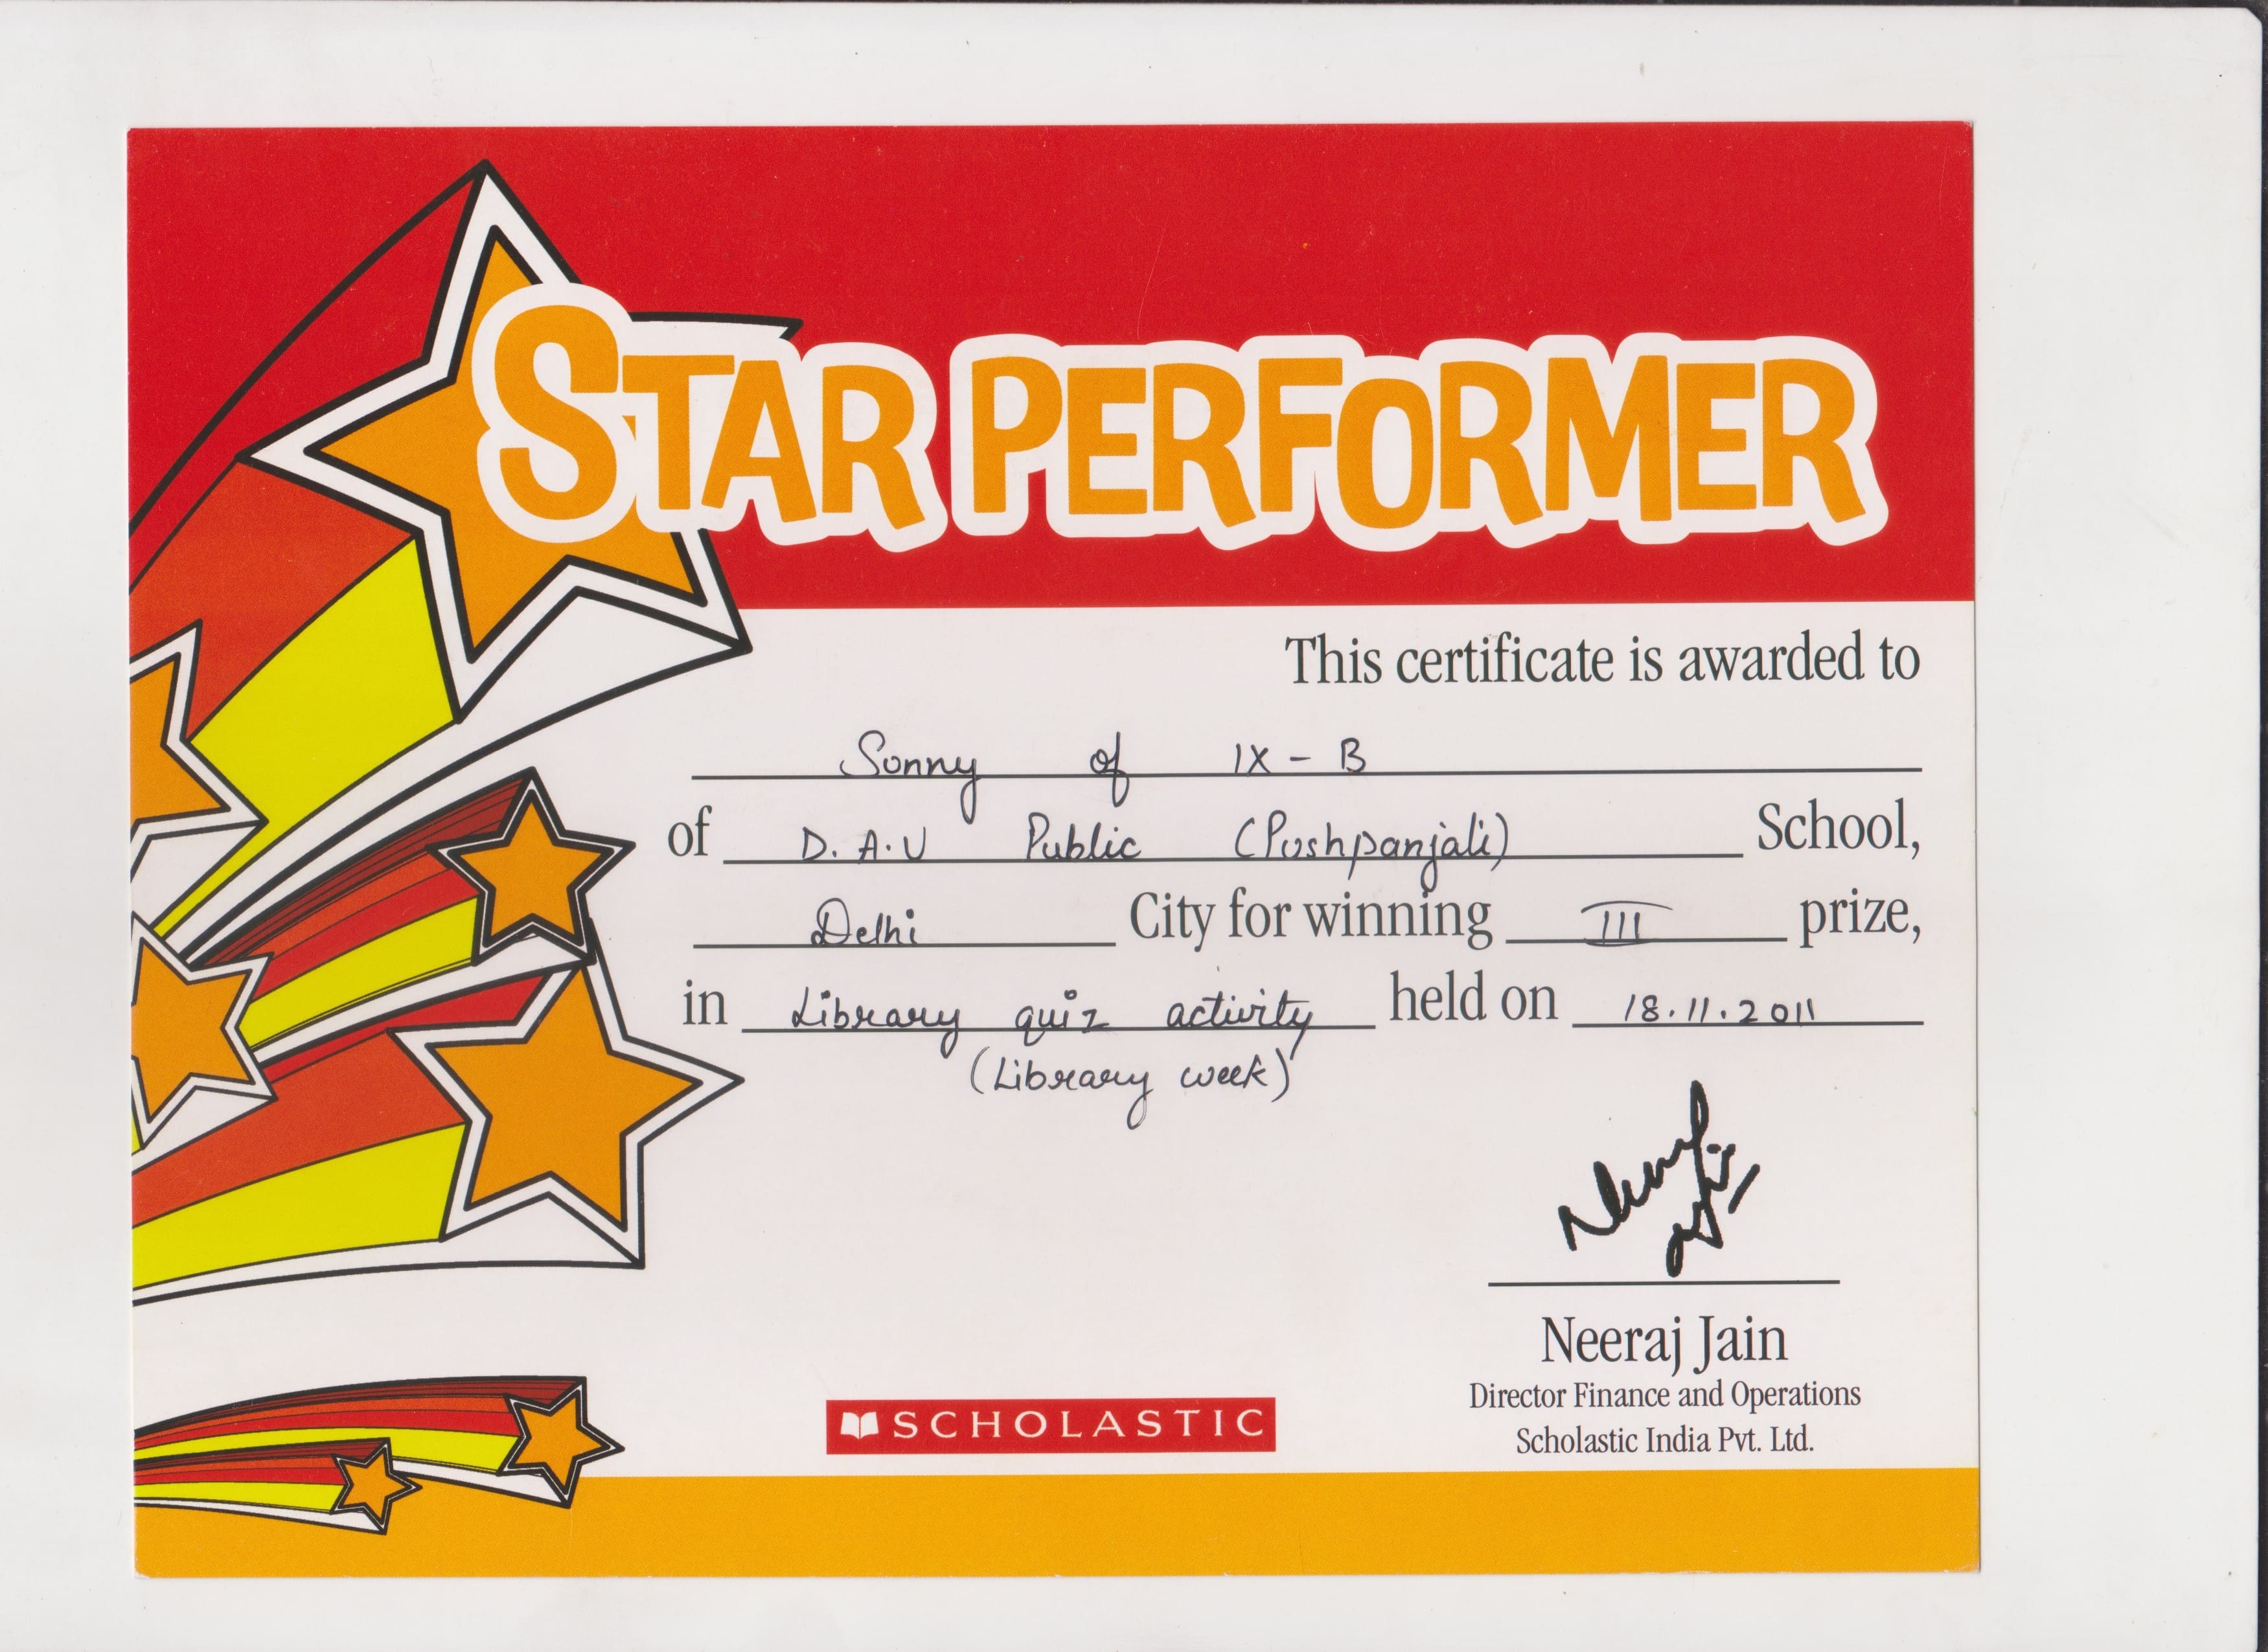 STAR PERFORMER
This certificate is awarded to
Sonny of IX - B
of D.A.V Public (Pushpanjali) School,
Delhi City for winning III prize,
in Library quiz activity held on 18.11.2011
(Library week)
Neeraj Jain
Director Finance and Operations
SCHOLASTIC
Scholastic India Pvt. Ltd.